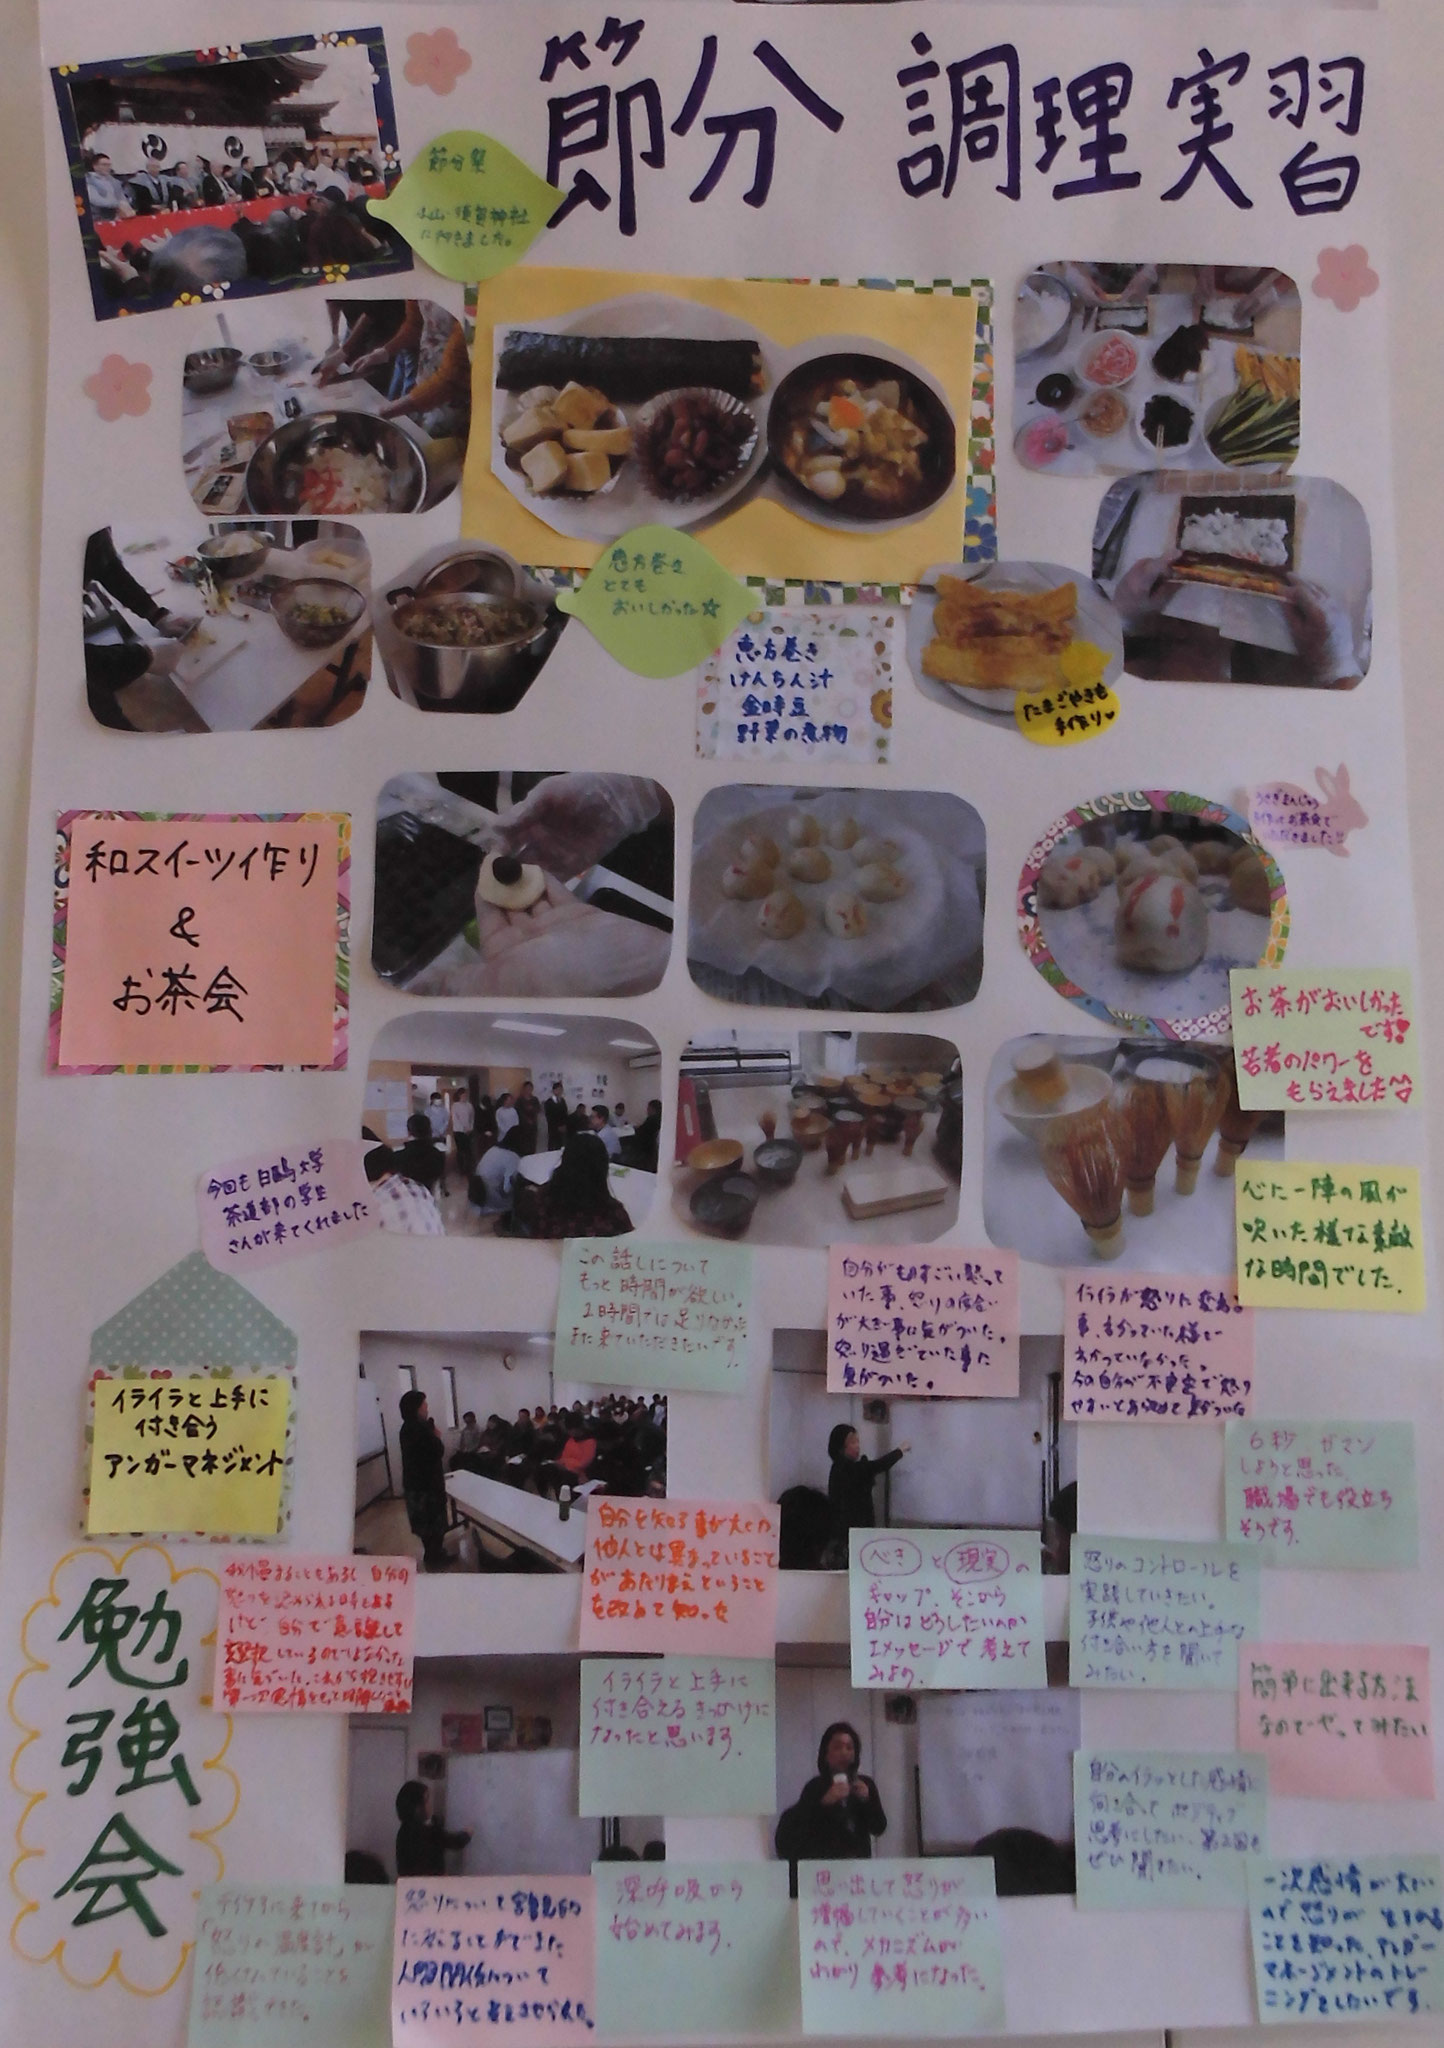 節分 調理実習
節分祭
小山・須賀神社
に行きました。
恵方巻き
とても
おいしかった☆
恵方巻き
けんちん汁
金時豆
野菜の煮物
たまごやきも
手作り♥
和スイーツ作り
&
お茶会
うさぎまんじゅう
お茶会で
いただきました
お茶がおいしかった
です!
若者のパワーを
もらえました
心に一陣の風が
吹いた様な素敵
な時間でした。
今回も白鴎大学
茶道部の学生
さんが来てくれました
イライラと上手に
付き合う
アンガーマネジメント
勉強会
この話しについて
もっと時間が欲しい。
1時間では足りなかった。
また来ていただきたいです。
自分がものすごい怒って
いた事、怒りの度合い
が大きい事に気がついた。
怒り過ぎていた事に
気がついた。
イライラが怒りに変わる
事、わかっていた様で
わかっていなかった。
今の自分が不安定で怒り
やすいとあらためて気がついた
6秒ガマン
しようと思った。
職場でも役立ち
そうです。
自分を知る事が大切、
他人とは異なっていること
があたりまえということ
を改めて知った
べき と 現実 の
ギャップ、そこから
自分はどうしたいのか
Iメッセージで考えて
みよう。
怒りのコントロールを
実践していきたい。
子供や他人との上手な
付き合い方を聞いて
みたい。
簡単に出来る方法
なのでやってみたい
イライラと上手に
付き合えるきっかけに
なったと思います。
自分のイラッとした感情に
向き合って ポジティブ
思考にしたい。第2回も
ぜひ聞きたい。
デイケアに来てから
「怒りの温度計」が
低くなっていることを
認識できた。
怒りについて客観的
に考えることができました
人間関係について
いろいろと考えさせられた。
深呼吸から
始めてみます。
思い出して怒りが
増幅していくことが多い
ので、メカニズムが
わかり参考になった。
一次感情が大きい
ので怒りが生まれる
ことを知った、アンガー
マネージメントのトレー
ニングをしたいです。